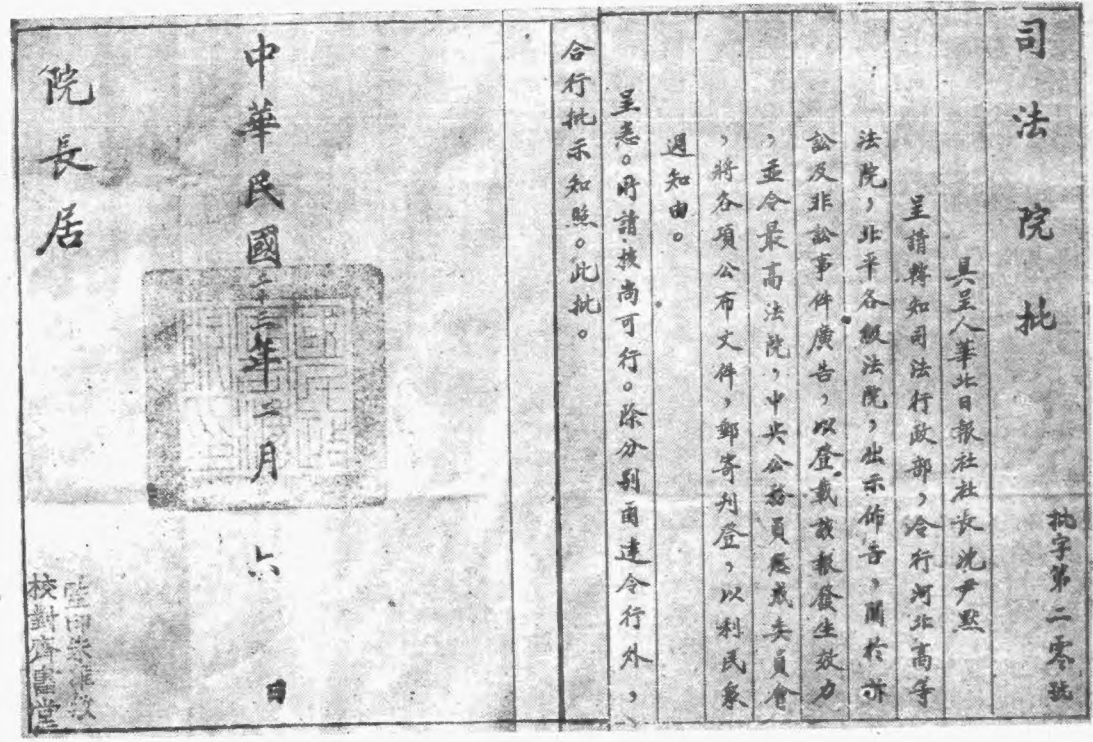 司法院批
批字第二零號
具呈人華北日報社社長沈尹默
呈請轉知司法行政部，洽行河北高等
法院，北平各級法院，出示佈告，關於訴
訟及非訟事件廣告，以登載該報發生效力
，並令最高法院，中央公務員懲戒委員會
，將各項公布文件，郵寄刊登，以利民眾
週知由。
呈悉。所請核尚可行。除分別函達令行外，
合行批示知照。此批。
中華民國二十二年二月六日
院長居
監印朱維
校對齊書堂